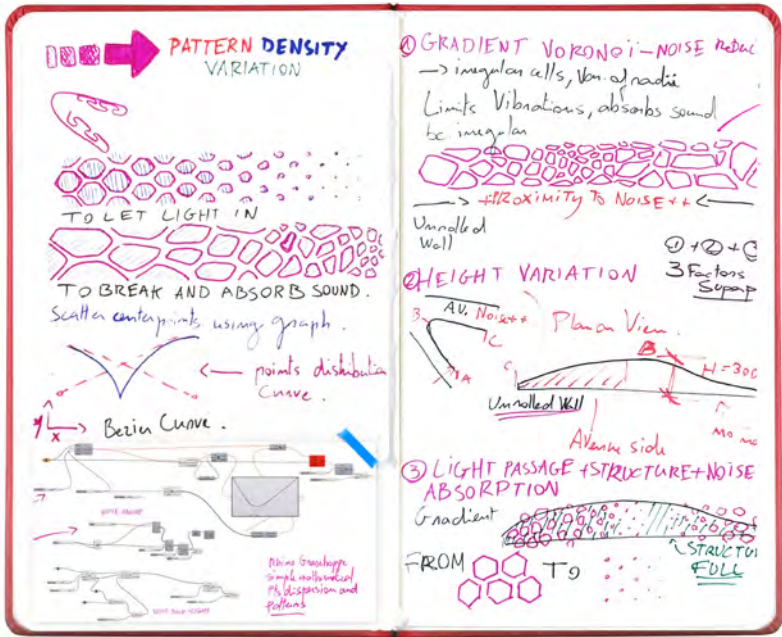 PATTERN DENSITY
VARIATION
TO LET LIGHT IN
TO BREAK AND ABSORB SOUND.
Scatter centerpoints using graph.
<— points distribution
Curve.
y
x
Bezier Curve.
Rhino Grasshoppe
simple mathematical
Pts dispersion and
patterns
① GRADIENT VORONOÏ – NOISE REDU
→ irregular cells, Var. of radii
Limits Vibrations, absorbs sound
bc irregular
→ +PROXIMITY TO NOISE++ ←
Unrolled
Wall
① + ② +
3 Factors
Superp
② HEIGHT VARIATION
AV. Noise++
B
C
A
Plan on View.
B
C
H=300
Unrolled Wall
Avenue side
③ LIGHT PASSAGE + STRUCTURE + NOISE
ABSORPTION
Gradient
STRUCTU
FULL
FROM
TO